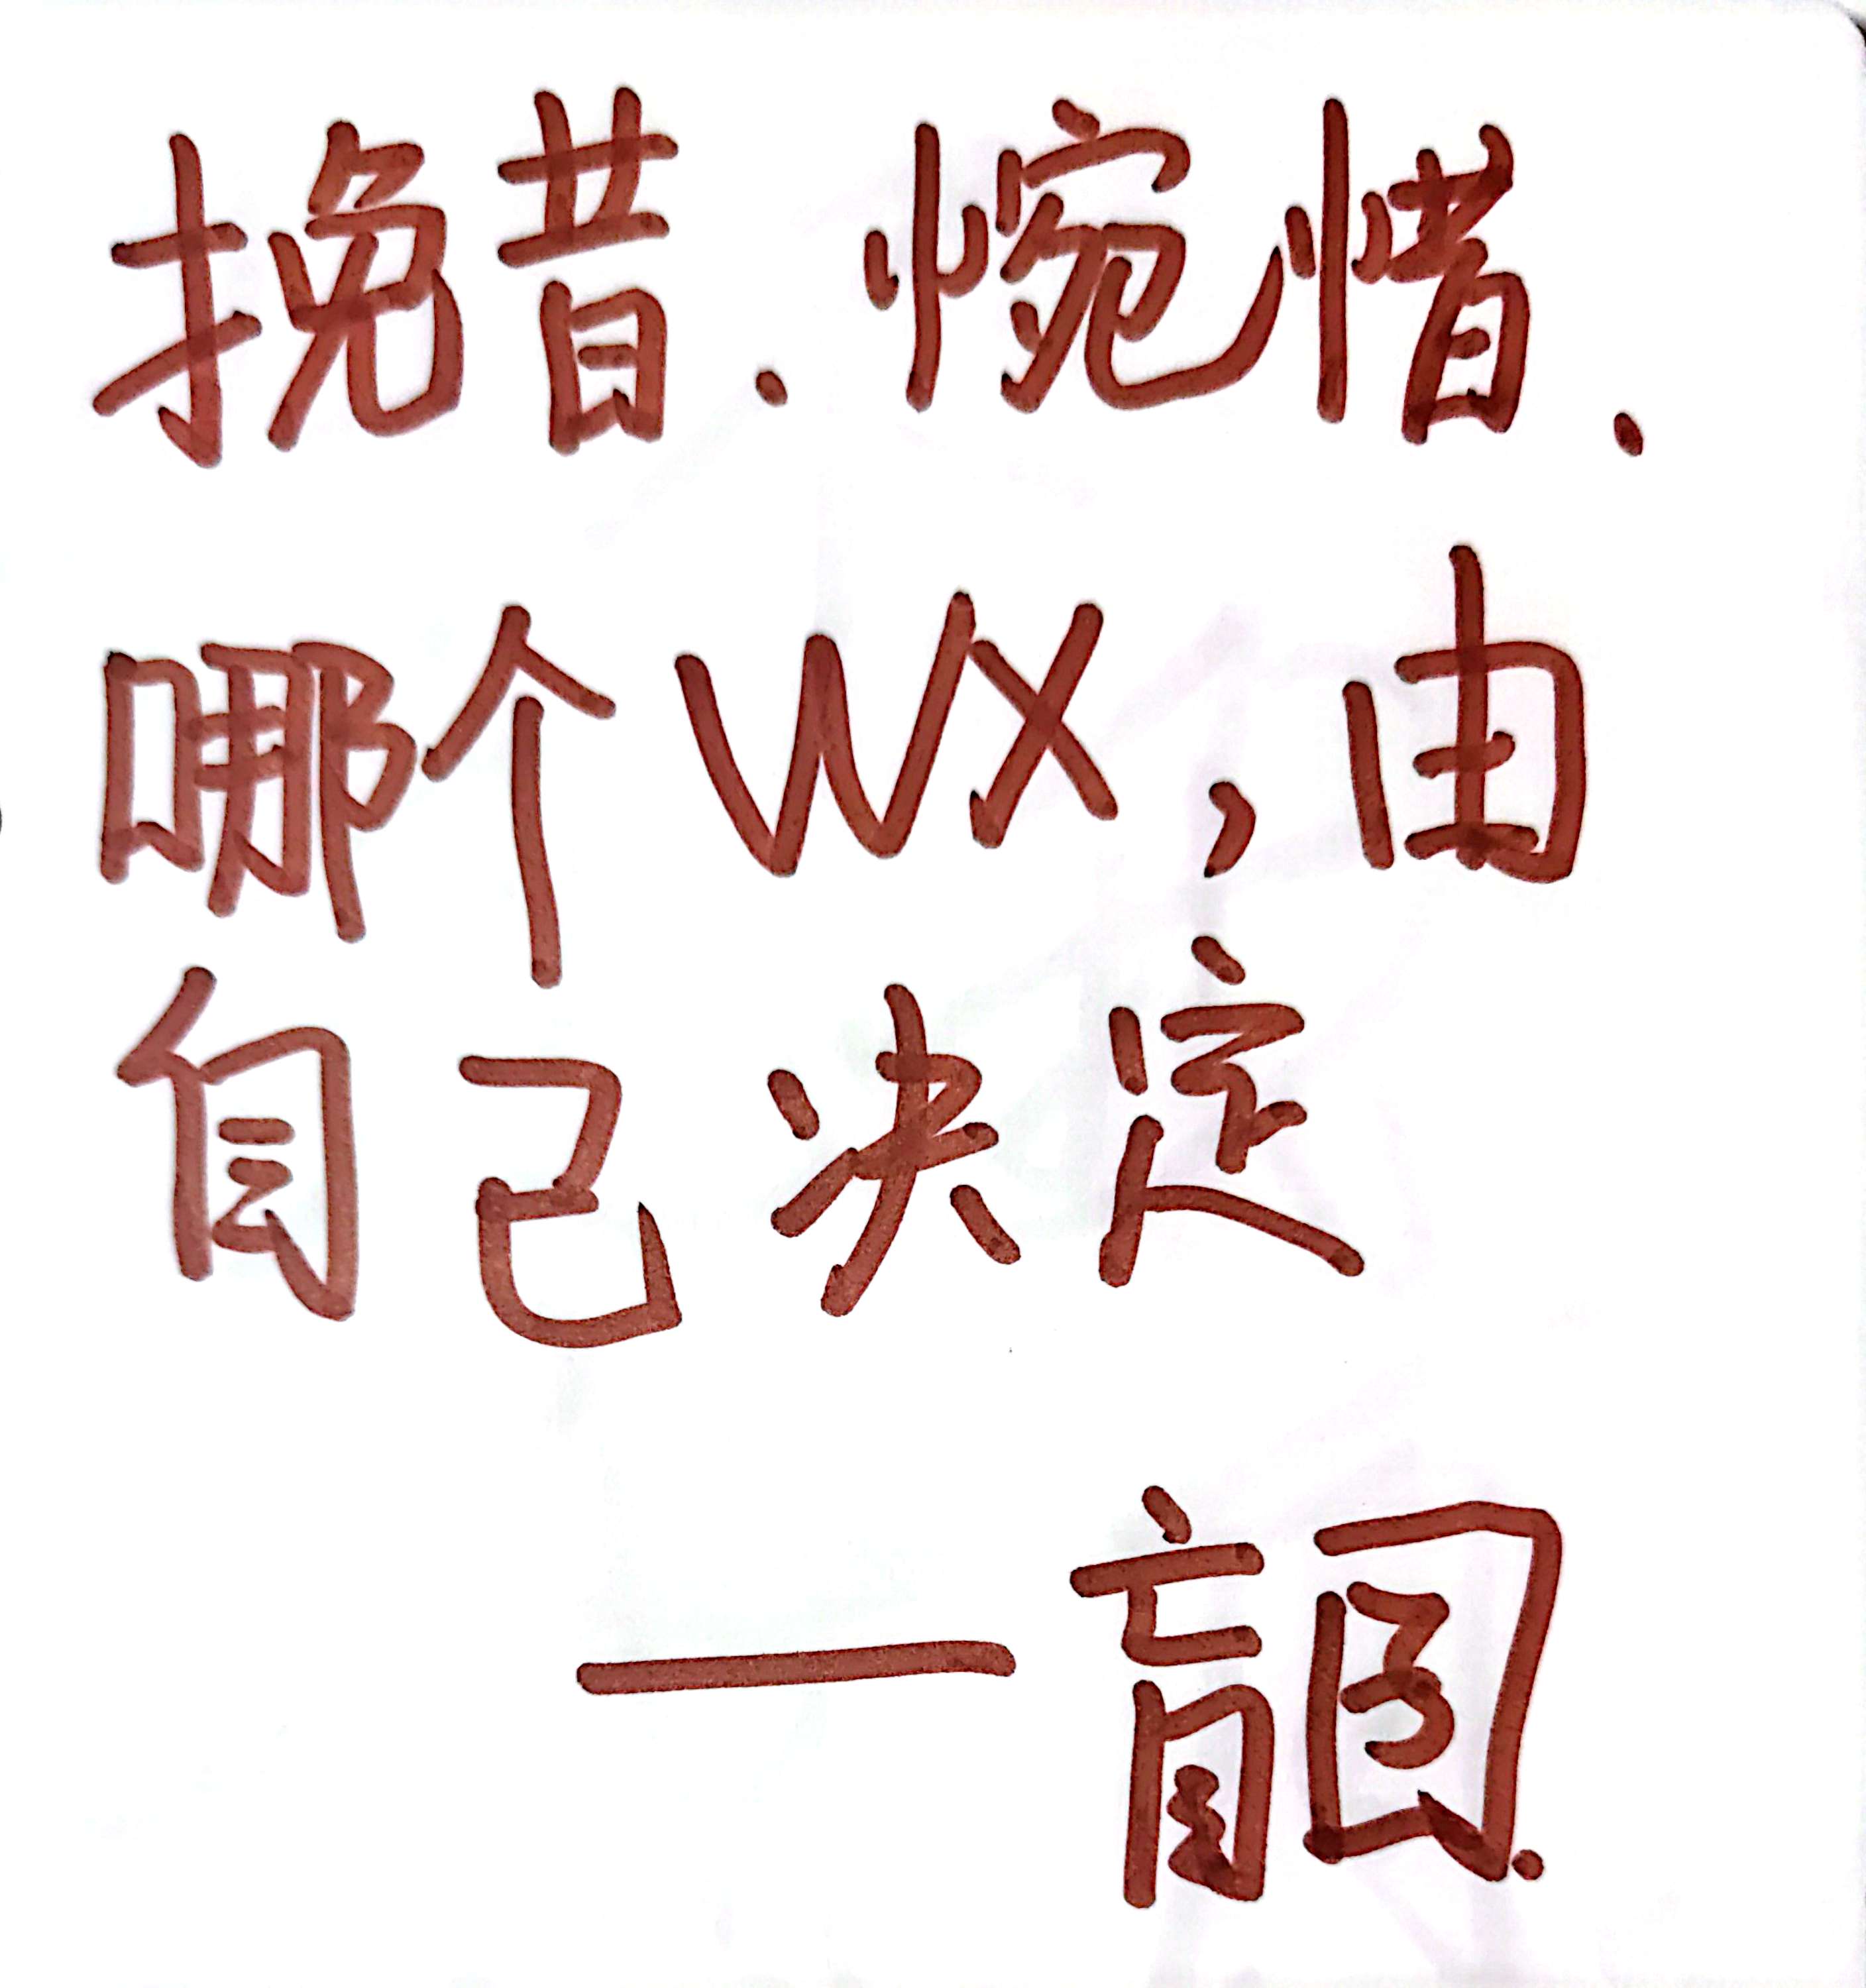 挽昔.惋惜.
哪个WX,由
自己决定
—盲圆.